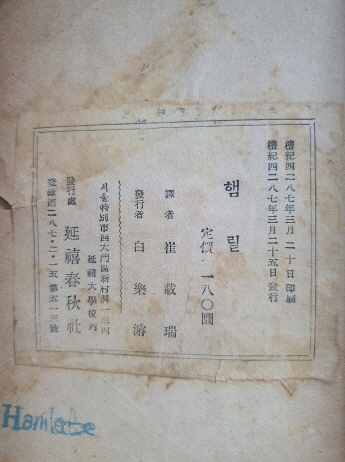 檀紀四二八七年三月二十日印刷
檀紀四二八七年三月二十五日發行
햄릴
定價 一八〇圜
譯者 崔載瑞
發行者 白樂濬
서울特別市西大門區新村洞一三四
延禧大學校內
發行處 延禧春秋社
登錄四二八七・二・一五 第五一三號